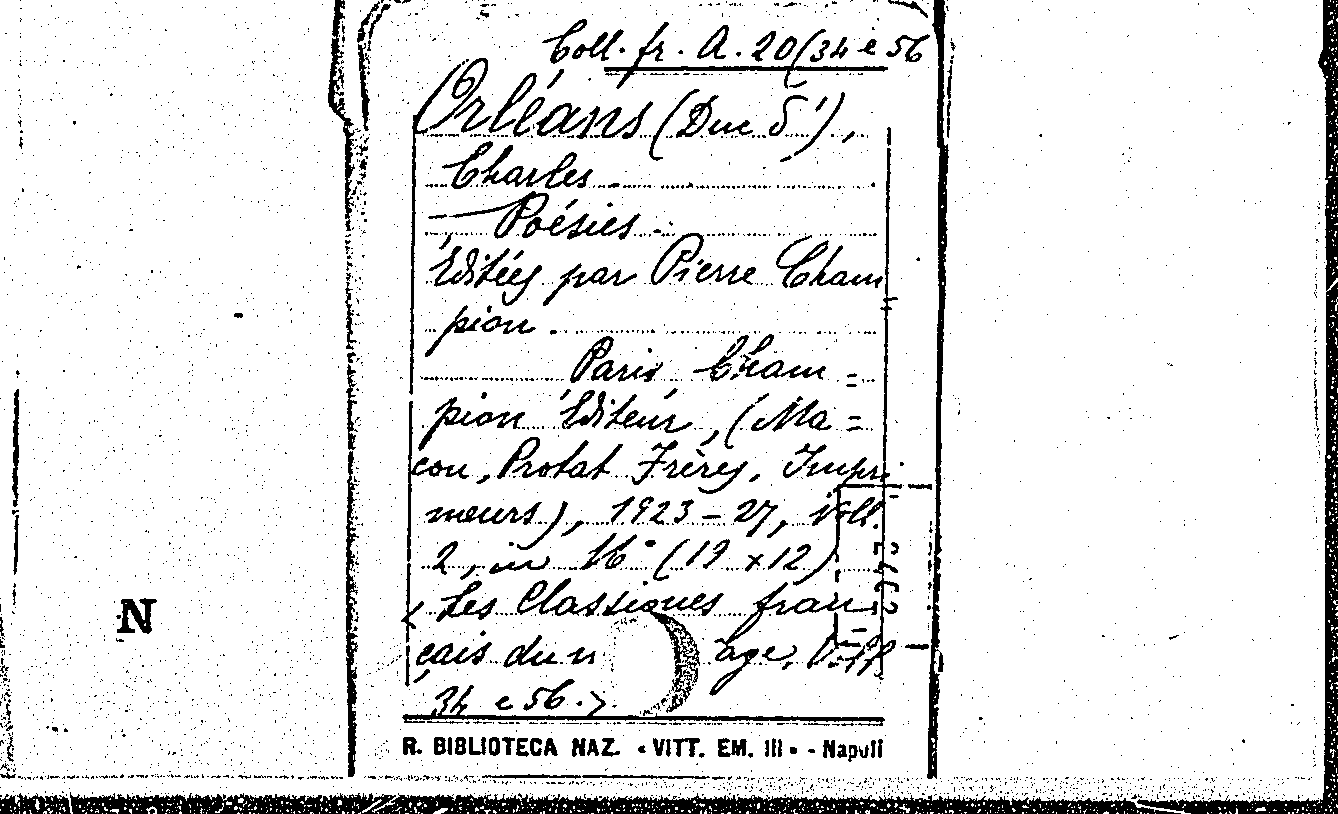 Coll. fr. A. 20 (34 e 56
Orléans (Duc d'),
Charles.
— Poésies.
Éditées par Pierre Cham
pion.
Paris, Cham=
pion Éditeur, (Ma=
çon, Protat Frères, Impri
meurs), 1923-27, Voll.
2, in 16° (19 x 12)
< Les Classiques fran
çais du âge, Voll
34 e 56. >
R. BIBLIOTECA NAZ. « VITT. EM. III » - Napoli
N